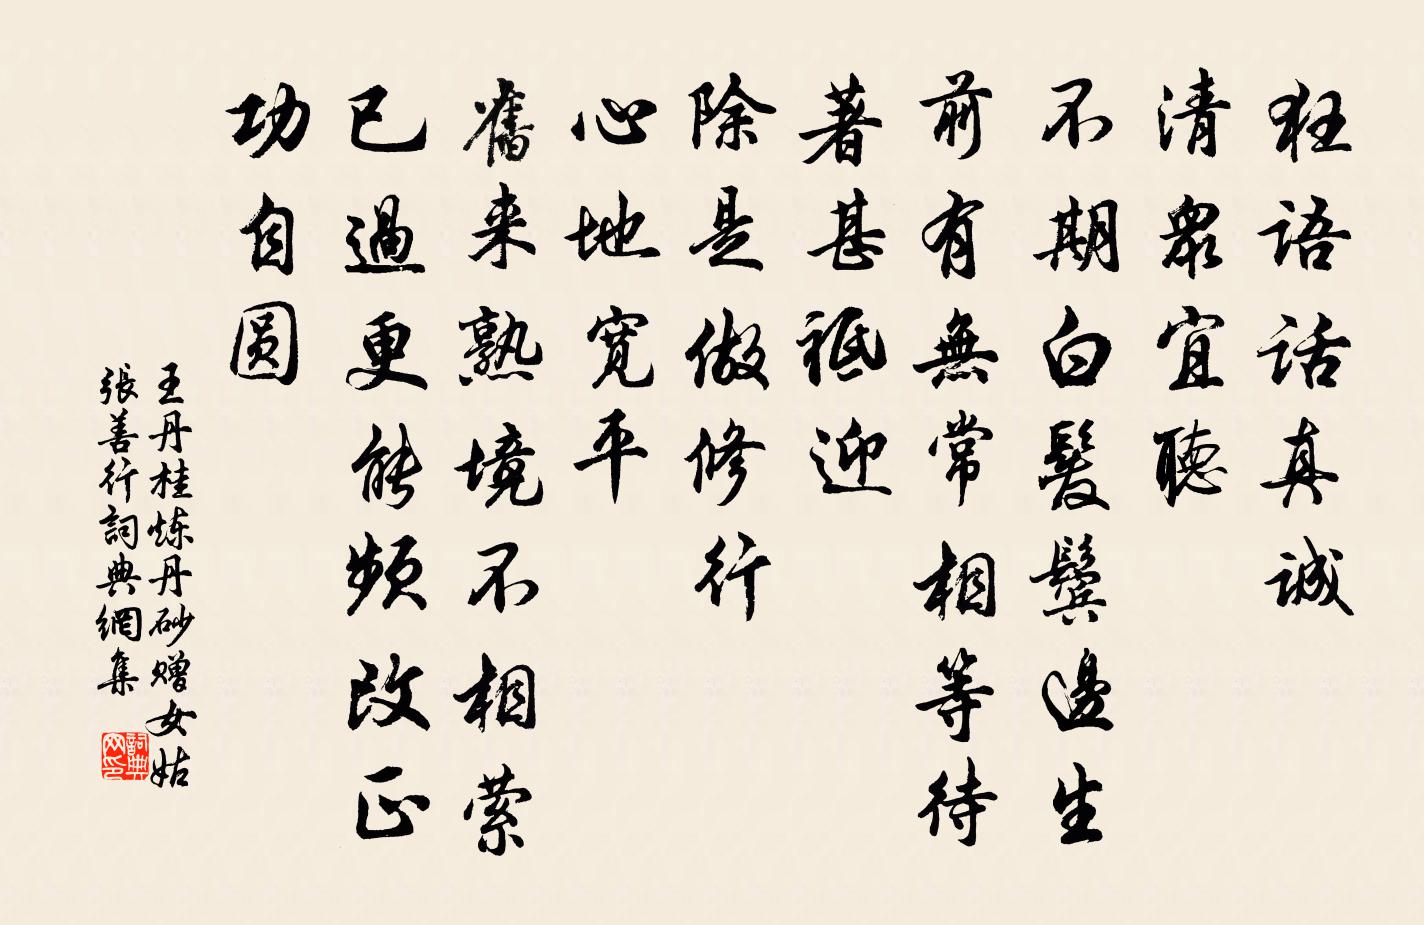 狂語話真誠
清眾宜聽
不期白髮鬢邊生
前有無常相等待
著甚祗迎
除是做修行
心地寬平
舊来熟境不相萦
已過更能頻改正
功自圆
王丹桂炼丹砂赠女姑
張善行詞典網集
詞典网印